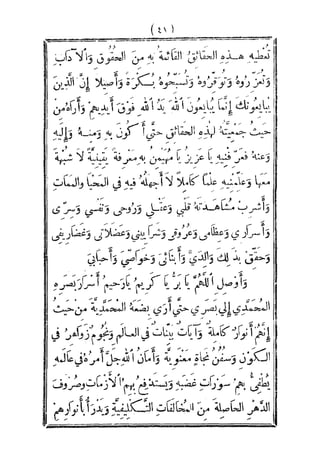 ( ٤١ )
تُعْطِيهِ هٰذِهِ الحَقَائِقُ القَائِمَةُ بِهِ مِنَ الحُقُوقِ وَالْآدَابِ
وَتُعَزِّرُوهُ وَتُوَقِّرُوهُ وَتُسَبِّحُوهُ بُكْرَةً وَأَصِيلًا إِنَّ الَّذِينَ
يُبَايِعُونَكَ إِنَّمَا يُبَايِعُونَ اللهَ يَدُ اللهِ فَوْقَ أَيْدِيهِمْ وَأَرَاهُ مِنْ
حَيْثُ جَمْعِيَّتُهُ لِهٰذِهِ الحَقَائِقِ حَتَّى أَكُونَ بِهِ وَمِنْهُ وَإِلَيْهِ
وَعَنْهُ فَعَرِّفْنِيهِ يَا عَزِيزُ يَا مُهَيْمِنُ بِهِ مَعْرِفَةً يَقِينِيَّةً لَا شُبْهَةَ
مَعَهَا وَعَلِّمْنِيهِ عِلْمًا كَامِلًا لَا أَجْهَلُهُ فِيهِ فِي المَحْيَا وَالمَمَاتِ
وَأَشْرِبْ مُشَاهَدَتَهُ قَلْبِي وَعَقْلِي وَرُوحِي وَنَفْسِي وَسِرِّى
وَأَسْرَارِي وَعِظَامِى وَعُرُوقِي وَشَرَايِينِي وَعَضَلَاتِى وَغَضَارِيفِى
وَحَقِّقْ بِذَلِكَ وَالِدَيَّ وَأَبْنَائِى وَخَوَاصِّي وَأَحْبَابِي
وَأَوْصِلِ اللّٰهُمَّ يَا بَرُّ يَا كَرِيمُ يَا رَحِيمُ أَسْرَارَ بَصَرِهِ
المُحَمَّدِي إِلَى بَصَرِي حَتَّى أَرَى بِضْعَهُ المُحَمَّدِيَّةَ مِنْ حَيْثُ
إِنَّهُمْ أَنْوَارٌ كَامِلَةٌ وَآيَاتٌ بَيِّنَاتٌ فِي العَالَمِ وَنُجُومٌ زَوَاهِرُ فِي
الكَوْنِ وَسُفُنُ نَجَاةٍ مَعْنَوِيَّةٍ وَأَمَانُ اللهِ جَلَّ أَمْرُهُ فِي عَالَمِهِ
يُطْفِئُ بِهِمْ سَوْرَاتِ غَضَبِهِ وَيَسْتَدْفِعُ بِهِمُ الْأَزَمَاتِ وَصُرُوفَ
الدَّهْرِ الحَاصِلَةِ مِنَ المُخَالَفَاتِ التَّكْلِيفِيَّةِ وَيَدْرَأُ بِأَنْوَارِهِمْ